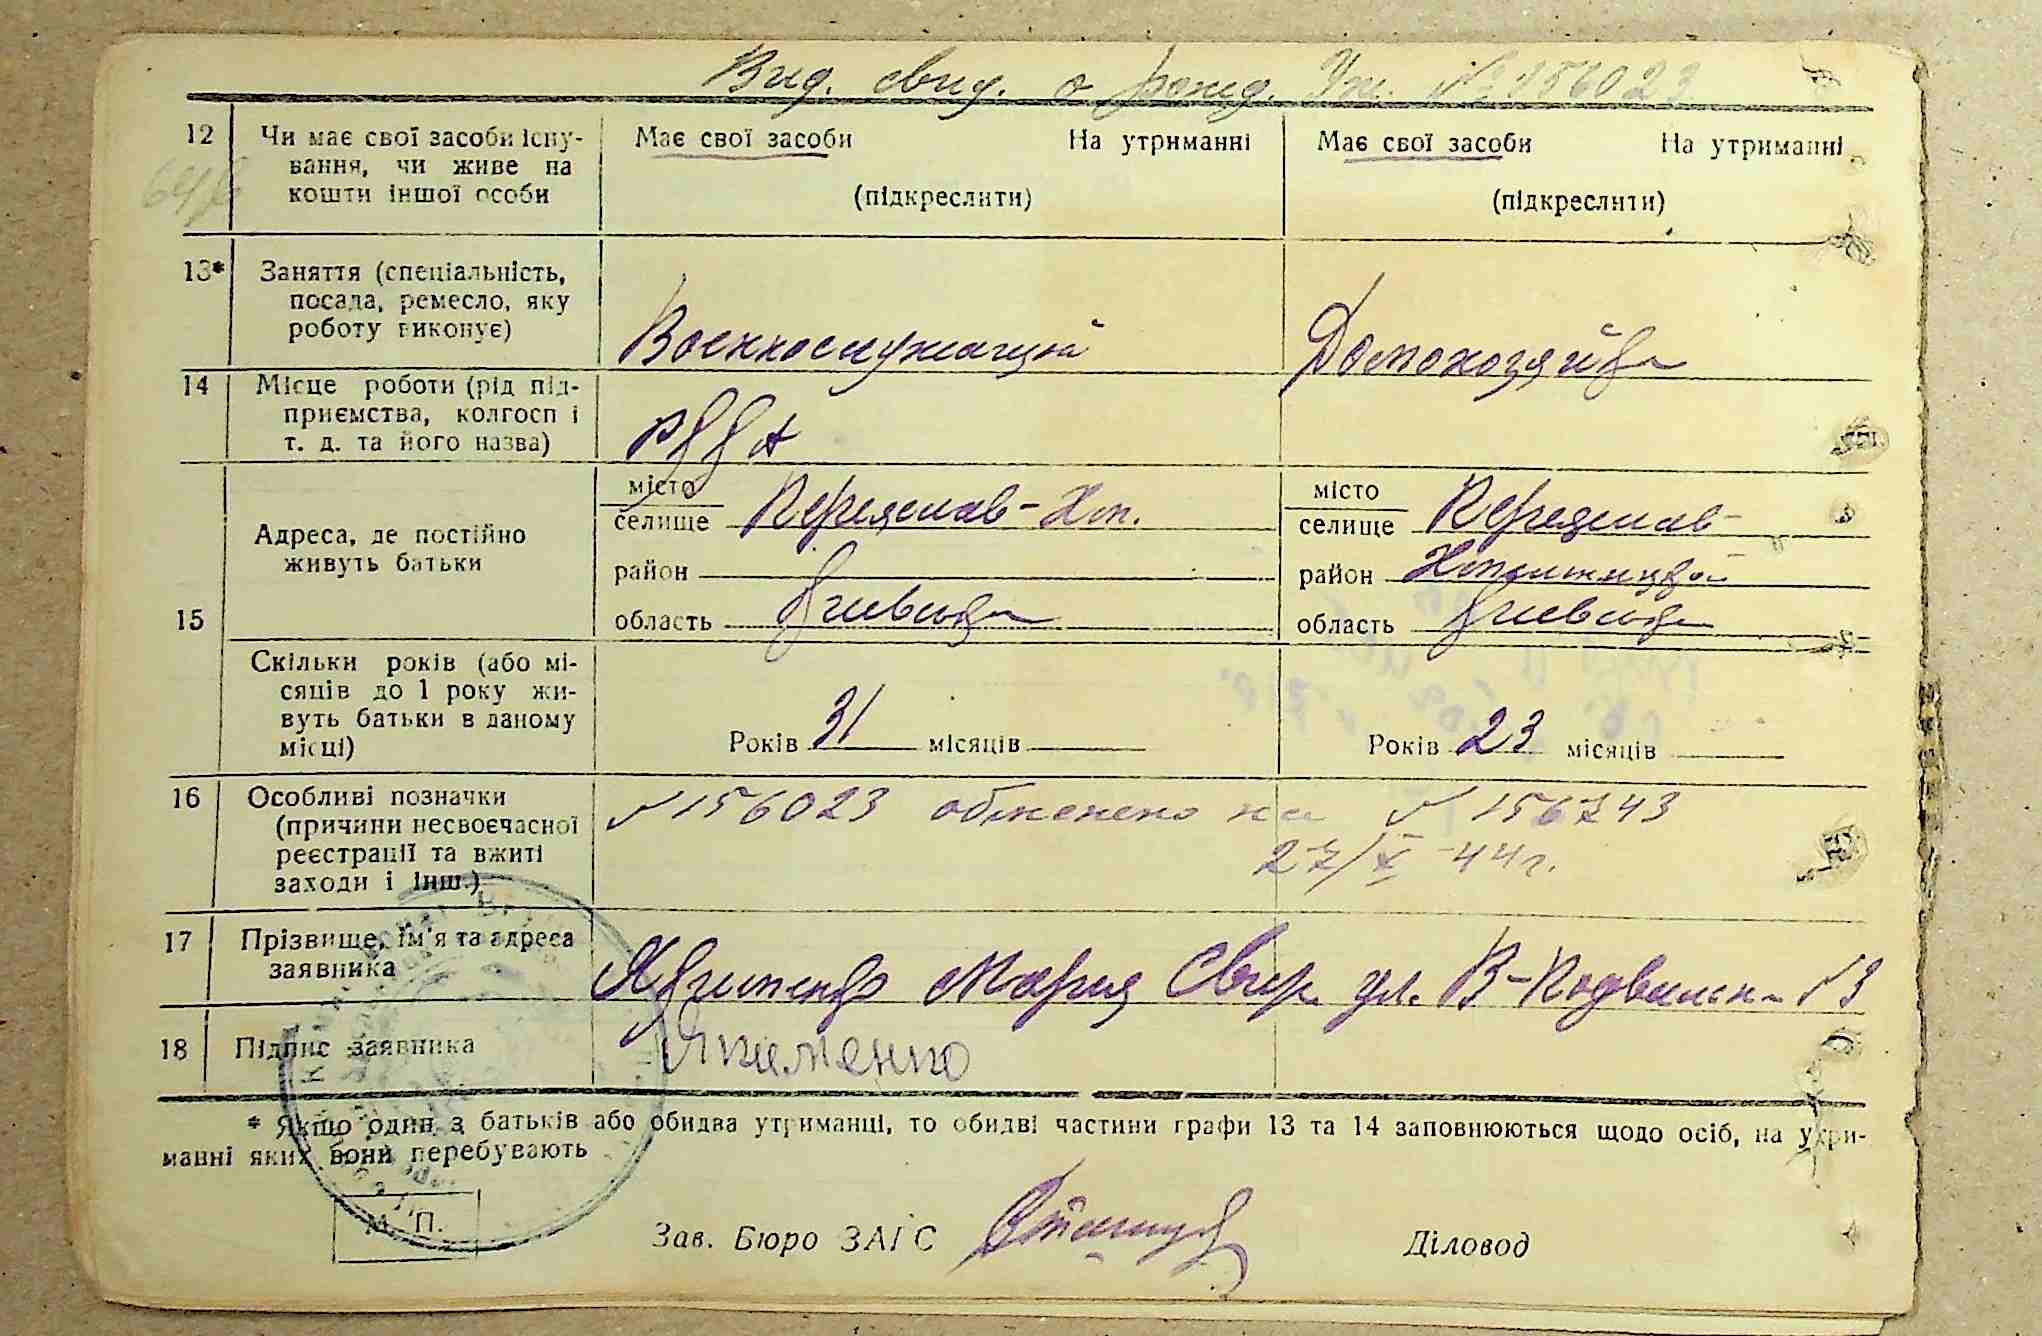 Выд. свид. о рожд. Уж. № 156023
12 Чи має свої засоби існу-
вання, чи живе на
кошти іншої особи
Має свої засоби На утриманні
(підкреслити)
Має свої засоби На утриманні
(підкреслити)
13* Заняття (спеціальність,
посада, ремесло, яку
роботу виконує)
Военнослужащий
Домохозяйка
14 Місце роботи (рід під-
приємства, колгосп і
т. д. та його назва)
РККА
15
Адреса, де постійно
живуть батьки
місто
селище Переяслав-Хм.
район
область Киевская
місто
селище Переяслав-
район Хмельницкой
область Киевская
Скільки років (або мі-
сяців до 1 року жи-
вуть батьки в даному
місці)
Років 31 місяців
Років 23 місяців
16 Особливі позначки
(причини несвоєчасної
реєстрації та вжиті
заходи і інш.)
№ 156023 обменено на № 156743
27/X 44 г.
17 Прізвище, ім'я та адреса
заявника
Якименко Мария Свир. ул. В-Подвальн- №3
18 Підпис заявника
Якименко
* Якщо один з батьків або обидва утриманці, то обидві частини графи 13 та 14 заповнюються щодо осіб, на утри-
манні яких вони перебувають
М. П.
Зав. Бюро ЗАГС
Діловод